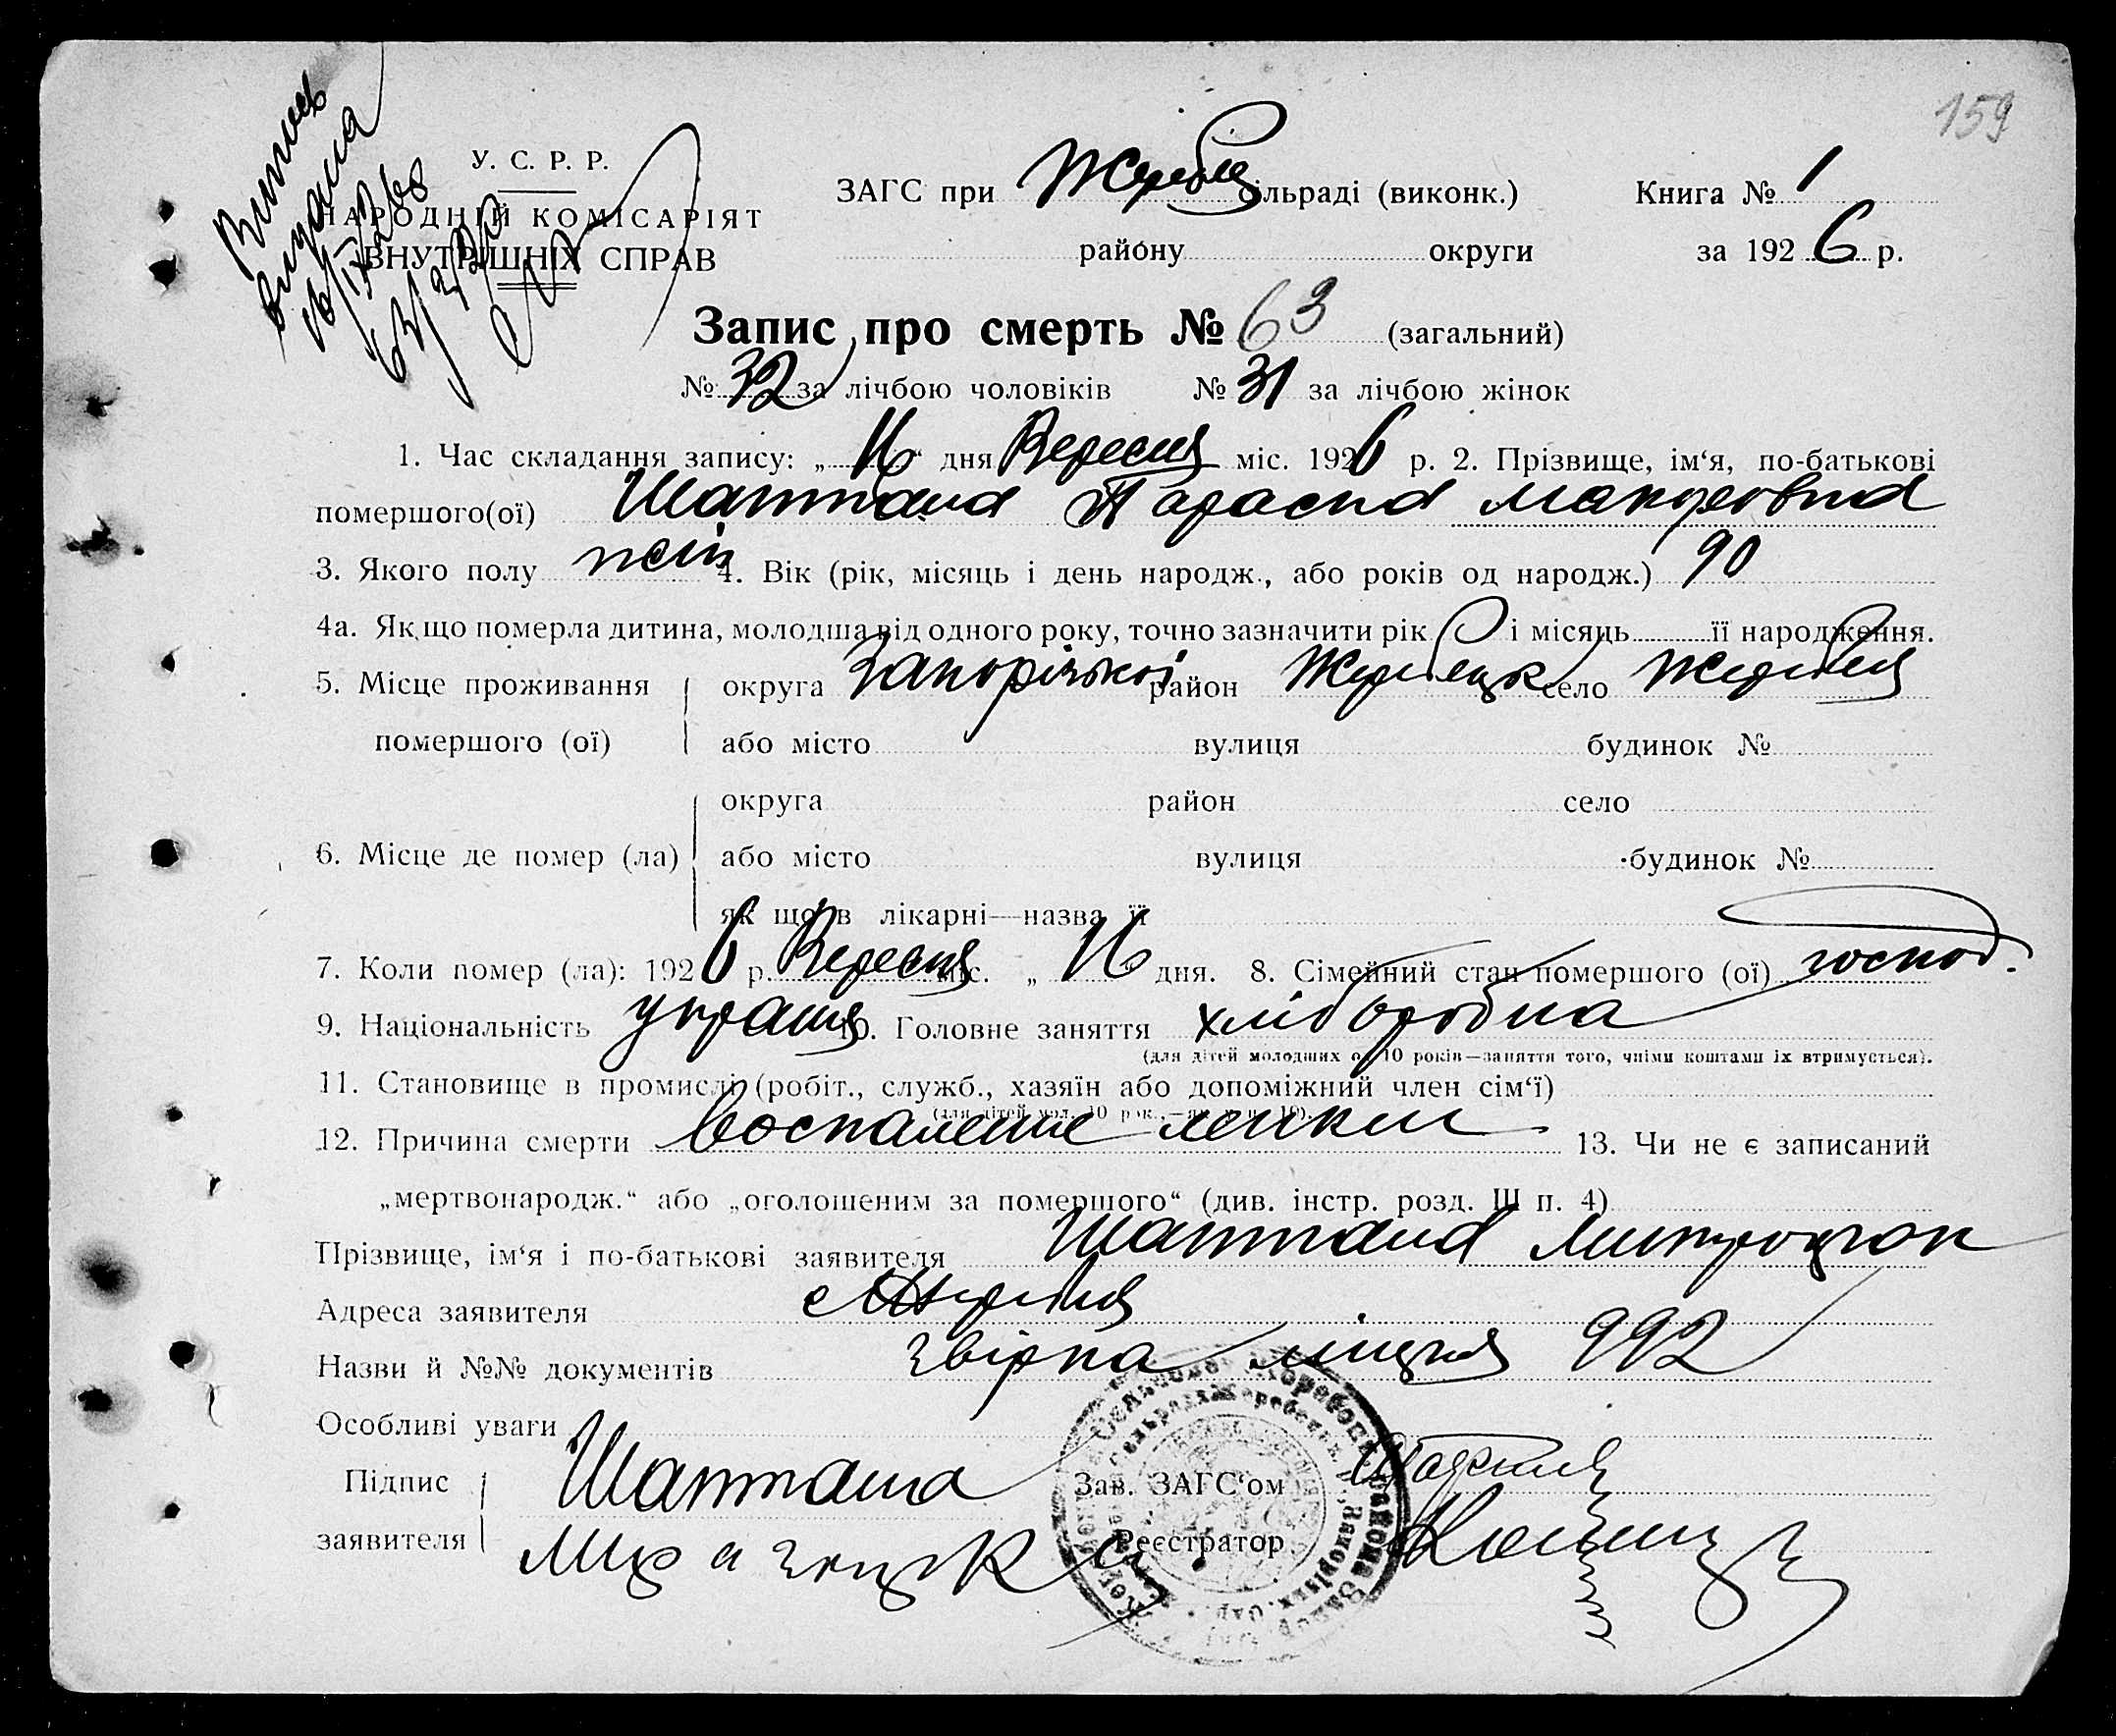 159
Витяг
видана
16/IX 26
У. С. Р. Р.
НАРОДНІЙ КОМІСАРІЯТ
ВНУТРІШНІХ СПРАВ
ЗАГС при Жеребец сільраді (виконк.) Книга № 1
району округи за 1926 р.
Запис про смерть № 63 (загальний)
№ 32 за лічбою чоловіків № 31 за лічбою жінок
1. Час складання запису: „16“ дня Вересня міс. 1926 р. 2. Прізвище, ім‘я, по-батькові
помершого(ої) Шаптала Параска Макаровна
3. Якого полу жін 4. Вік (рік, місяць і день народж., або років од народж.) 90
4а. Як що померла дитина, молодша від одного року, точно зазначити рік і місяць її народження.
5. Місце проживання округа Запорізькој район Жеребецьк село Жеребец
помершого (ої) або місто вулиця будинок №
округа район село
6. Місце де помер (ла) або місто вулиця будинок №
як що в лікарні—назва її
7. Коли помер (ла): 1926 р. Вересня міс. „16“ дня. 8. Сімейний стан помершого (ої) господ.
9. Національність україн 10. Головне заняття хліборобна
(для дітей молодших од 10 років—заняття того, чиїми коштами їх втримується).
11. Становище в промислі (робіт., служб., хазяїн або допоміжний член сім‘ї)
(для дітей мол. 10 рок.,—як у п. 10).
12. Причина смерти воспаление легких 13. Чи не є записаний
„мертвонародж.“ або „оголошеним за помершого“ (див. інстр. розд. Ш п. 4)
Прізвище, ім‘я і по-батькові заявителя Шаптала Митрофан
Адреса заявителя с Жеребец
Назви й №№ документів звірка 992
Особливі уваги
Підпис Шаптала Зав. ЗАГС‘ом
заявителя Реєстратор